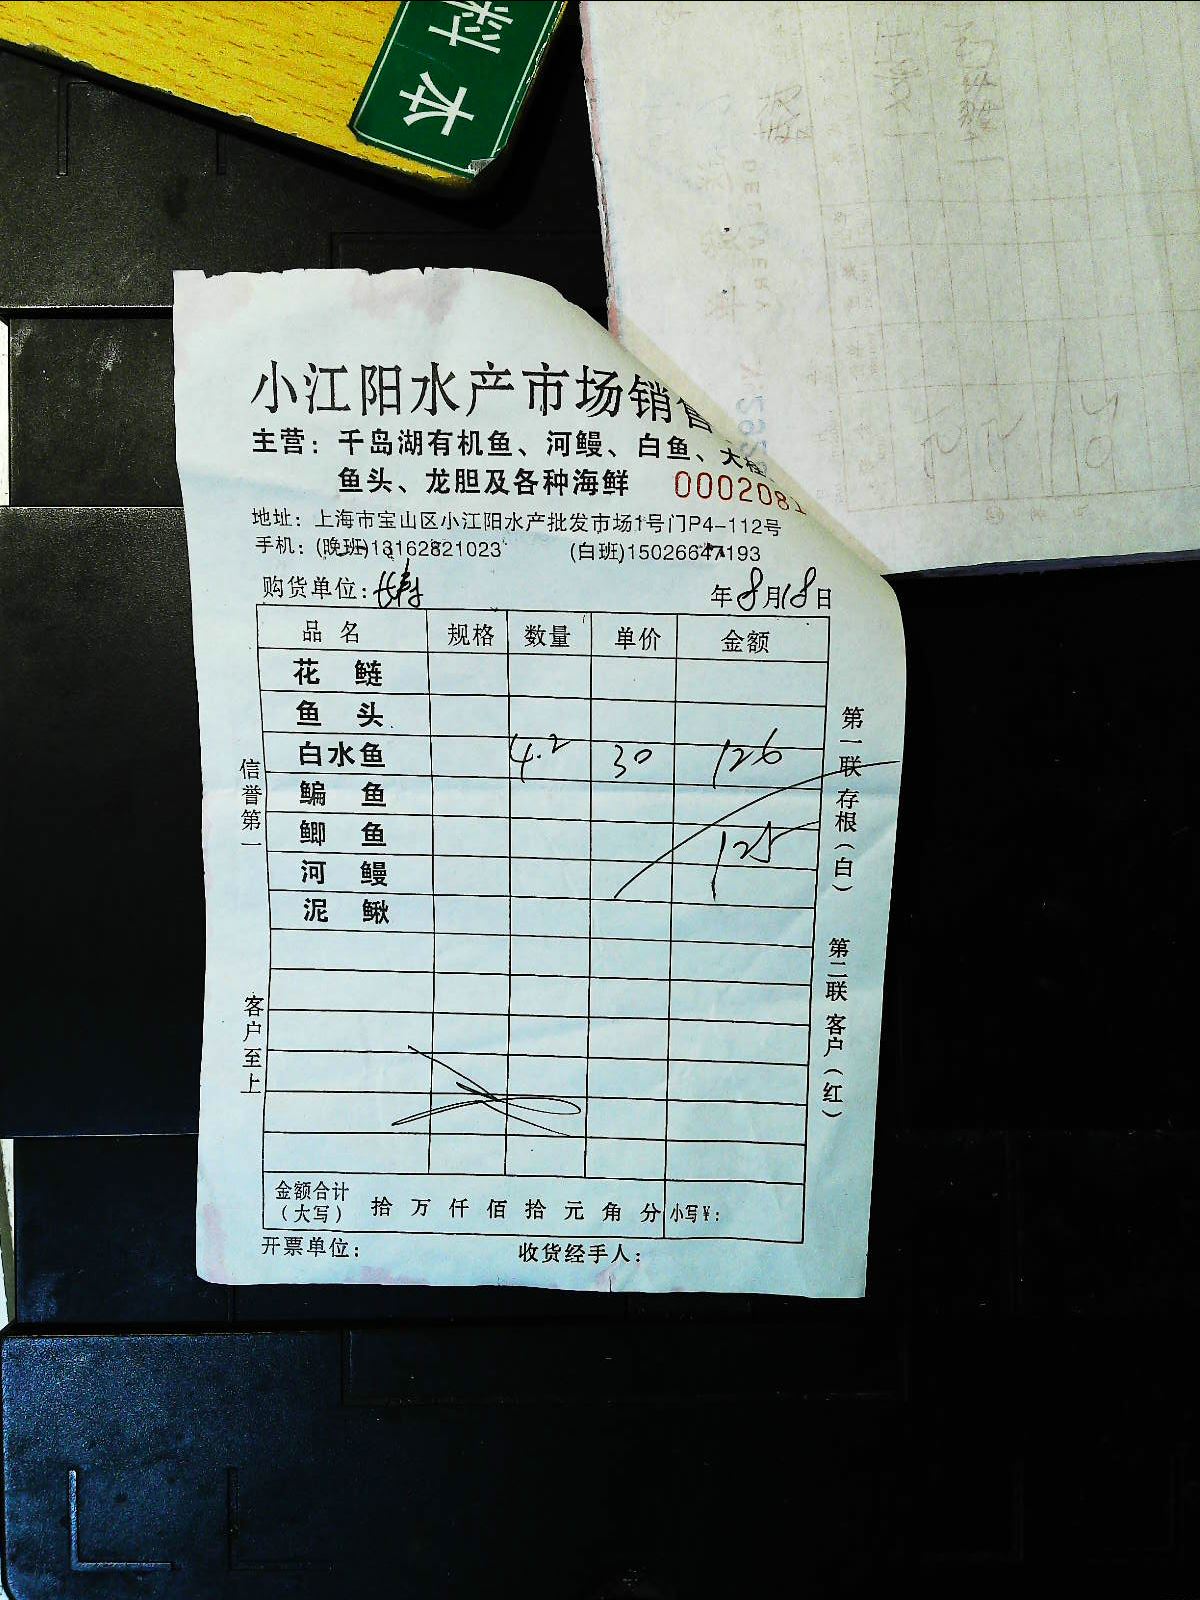 料本
小江阳水产市场销售
主营：千岛湖有机鱼、河鳗、白鱼、大
鱼头、龙胆及各种海鲜 0002081
地址：上海市宝山区小江阳水产批发市场1号门P4-112号
手机：(晚班)13162821023 (白班)1502664193
购货单位： 年8月18日
品名 规格 数量 单价 金额
花鲢
鱼头
白水鱼 4.2 30 126
鳊鱼
鲫鱼 125
河鳗
泥鳅
金额合计（大写） 拾 万 仟 佰 拾 元 角 分 小写¥：
开票单位： 收货经手人：
信誉第一
客户至上
第一联 存根（白）
第二联 客户（红）